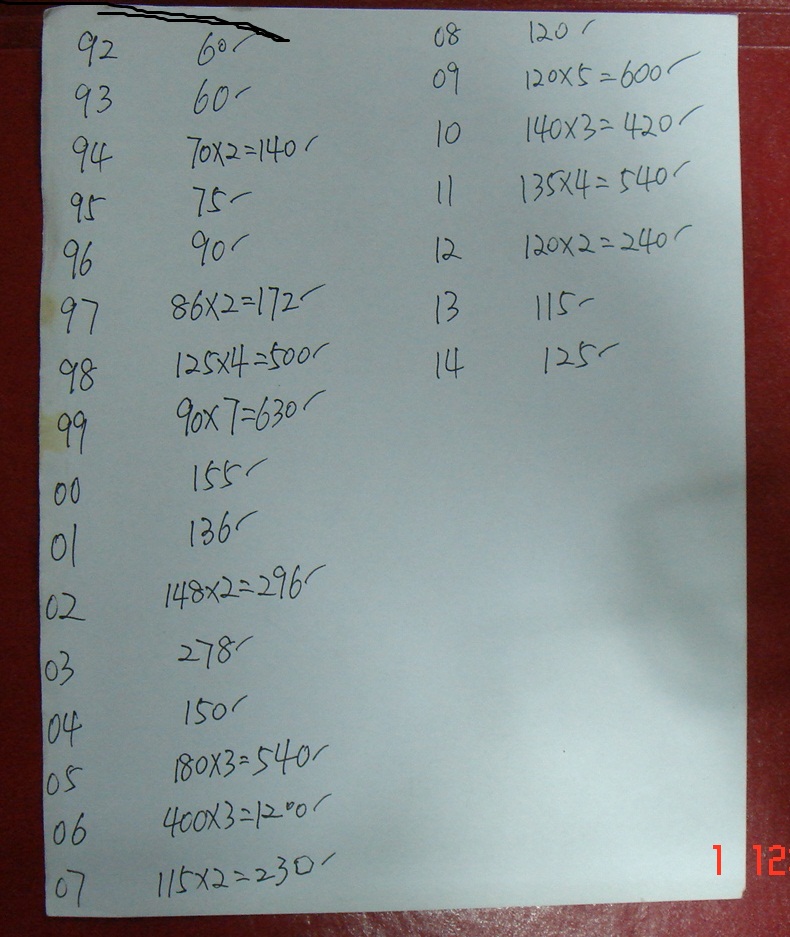 92 60✓
93 60✓
94 70×2=140✓
95 75✓
96 90✓
97 86×2=172✓
98 125×4=500✓
99 90×7=630✓
00 155✓
01 136✓
02 148×2=296✓
03 278✓
04 150✓
05 180×3=540✓
06 400×3=1200✓
07 115×2=230✓
08 120✓
09 120×5=600✓
10 140×3=420✓
11 135×4=540✓
12 120×2=240✓
13 115✓
14 125✓
1 12